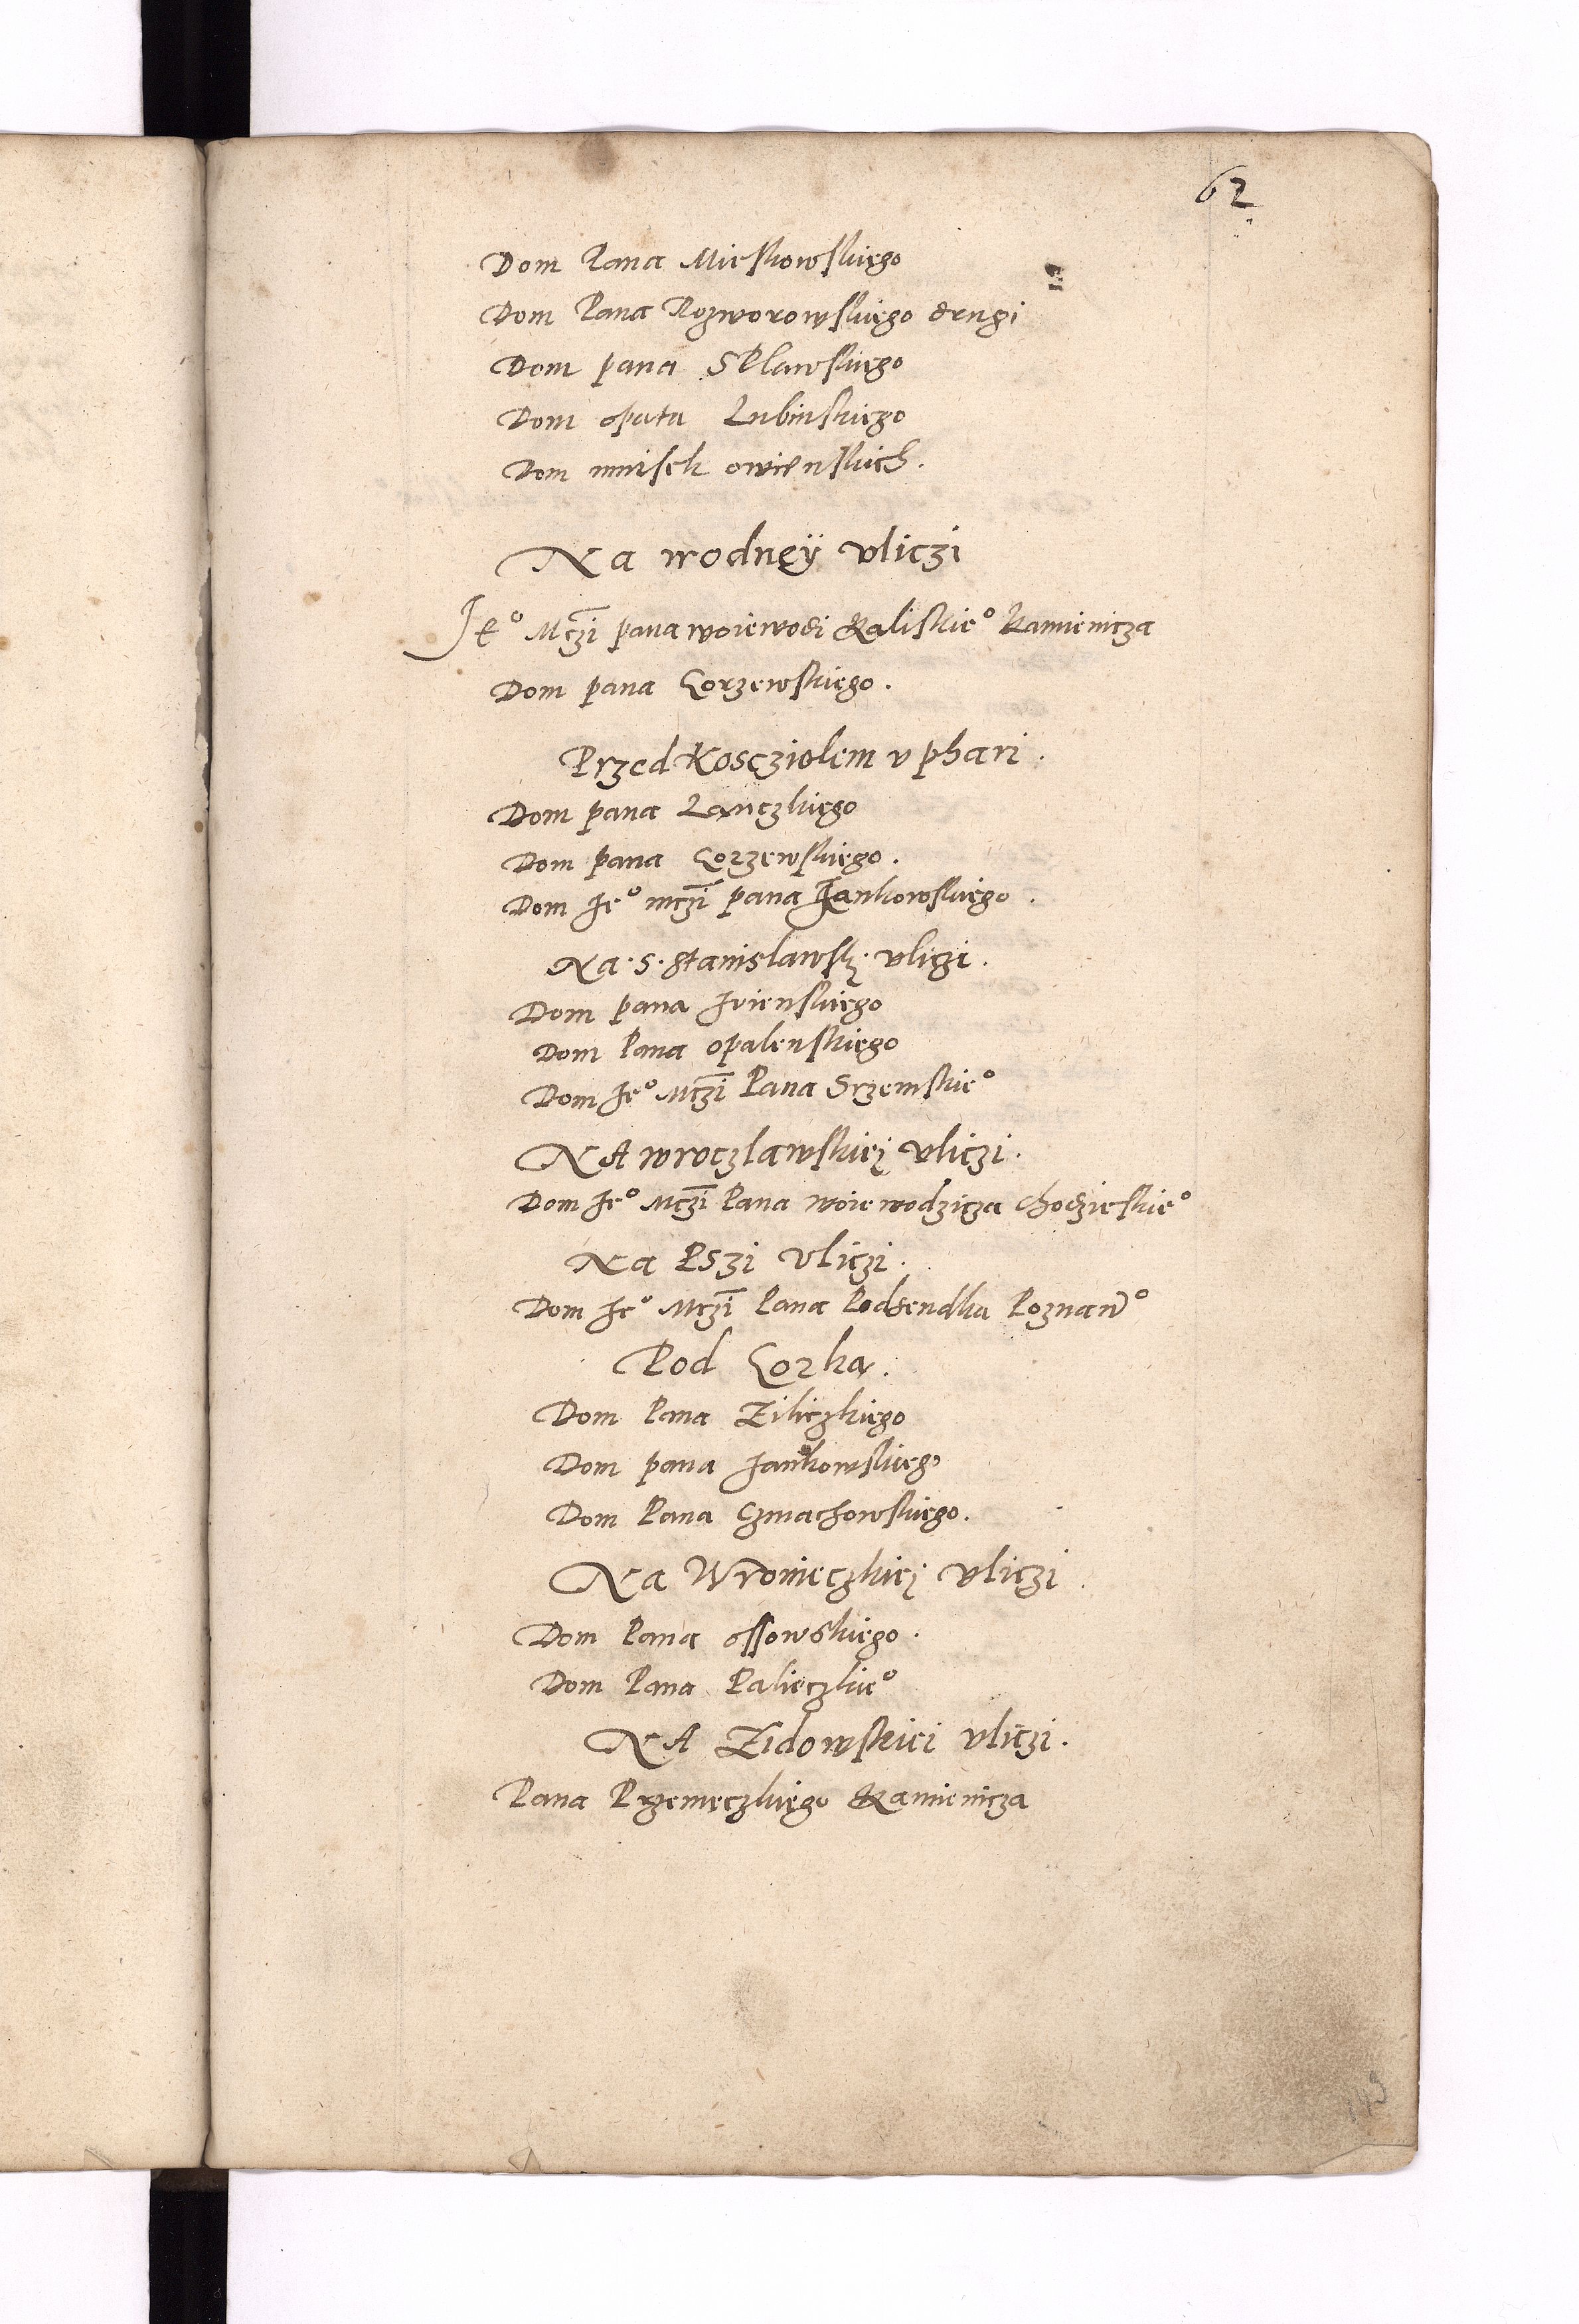 62
Dom Pana Mieskowskięgo
Dom Pana Rozworowskięgo drugi
Dom pana Splawskięgo
Dom opata Lubinskięgo
Dom mnisek owienskich.
Na wodnęÿ vliczi
Je° Mczi pana woiewodi Kaliskie° Kamienicza
Dom pana Gorzewskięgo.
Przed Kosęziolem v phari.
Dom pana Lanczkięgo
Dom pana Gorzewskięgo.
Dom Je° mczi pana Jankowskięgo.
Na S. Stanislawsk. vliczi.
Dom pana Jrienskięgo
Dom Pana opalenskięgo
Dom Je° Mczi Pana Srzemskie°
NA wroczlawskiej vliczi.
Dom Je° Mczi Pana woiewodzicza Chodzieskie°
Na Pszi vliczi.
Dom Je° Mczi Pana Podsendka Poznan°
Pod Gorka.
Dom Pana Ziliczkięgo
Dom pana Jankowskięgo
Dom Pana Czmachowskięgo.
Na Wronieczkiej vliczi
Dom Pana ossowskięgo.
Dom Pana Palieczkie°
NA Zidowskiei vliczi.
Pana Przemęczkięgo Kamienicza